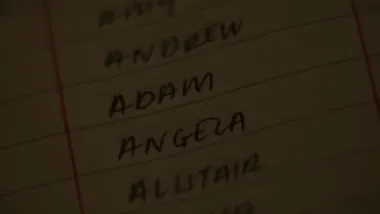 ANDREW
ADAM
ANGELA
ALISTAIR